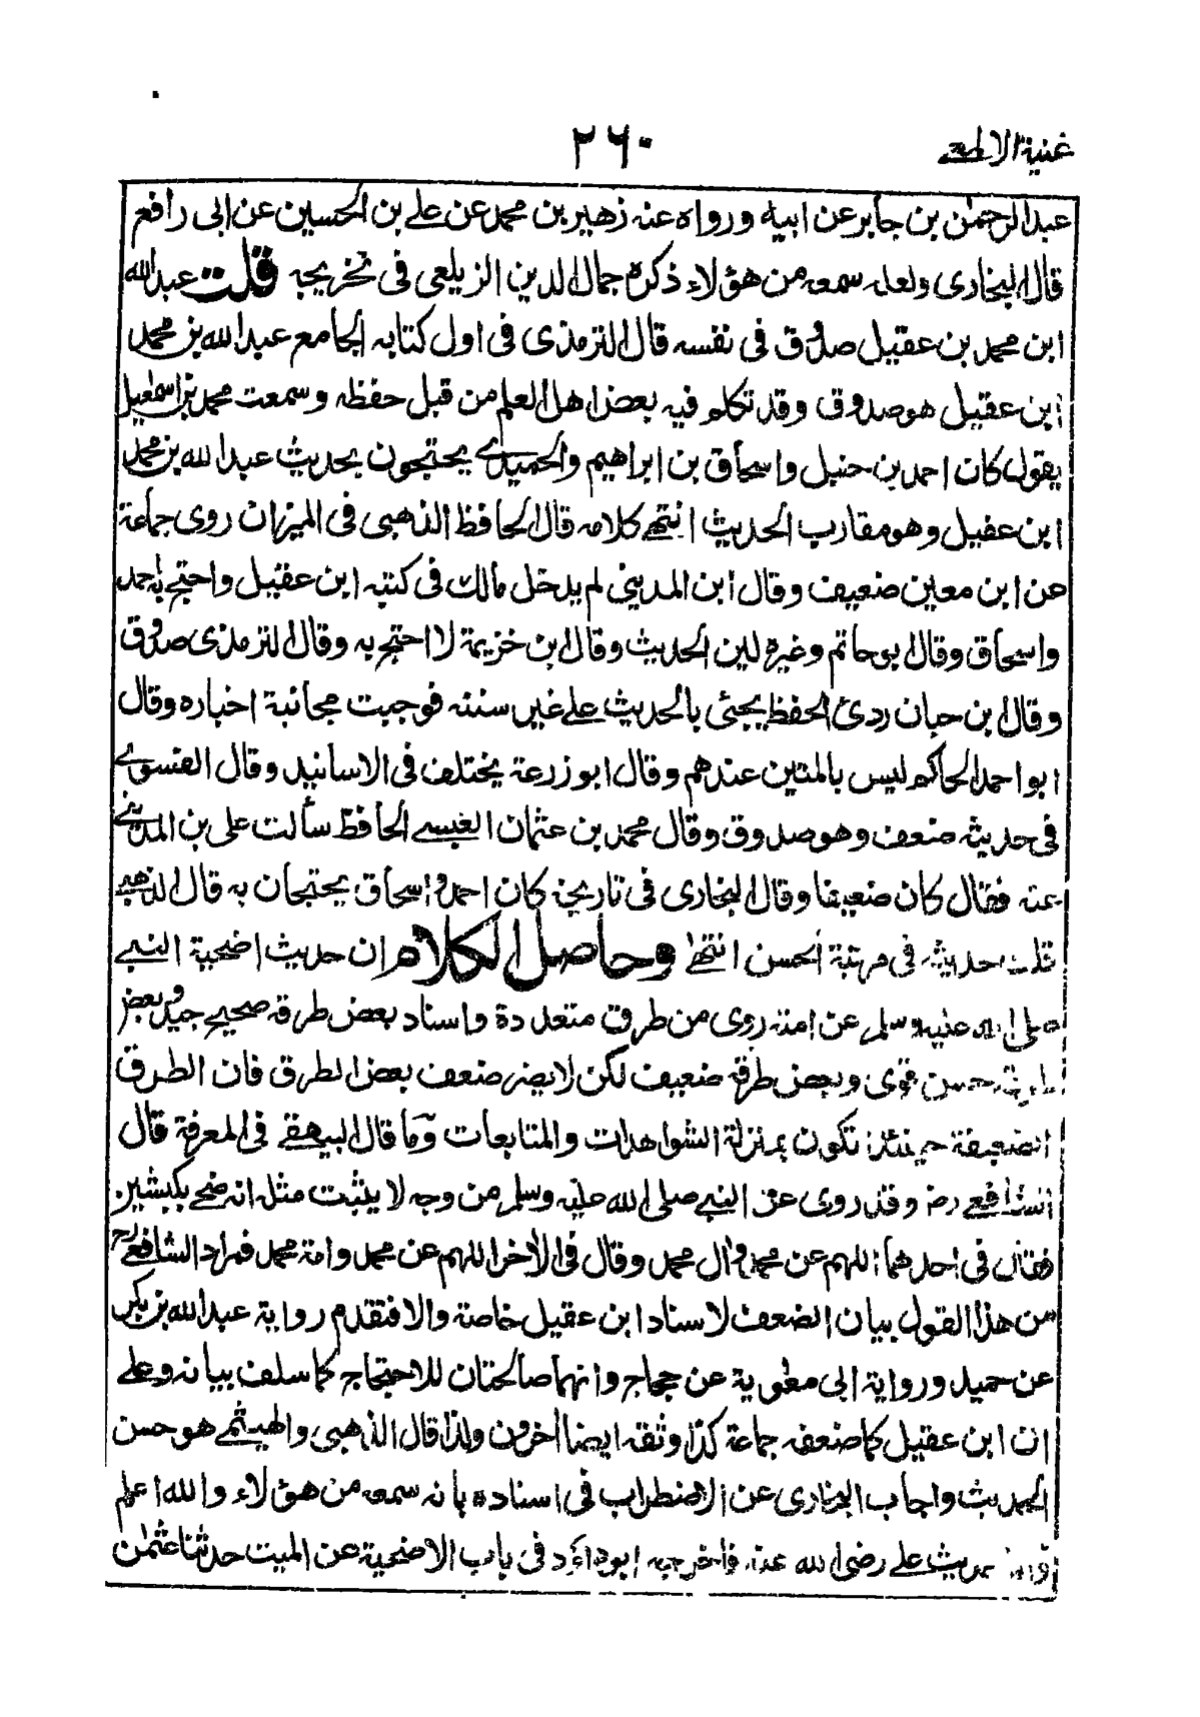 غنية الالمعى
٢٦٠
عبدالرحمٰن بن جابر عن ابيه ورواه عنه زهير بن محمد عن علے بن الحسين عن ابى رافع
قال البخارى ولعله سمعه من هؤلاء ذكره جمال الدين الزيلعى فى تخريجه قلت عبدالله
ابن محمد بن عقيل صدوق فى نفسه قال الترمذى فى اول كتابه الجامع عبدالله بن محمد
ابن عقيل هو صدوق وقد تكلم فيه بعض اهل العلم من قبل حفظه وسمعت محمد بن اسمٰعيل
يقول كان احمد بن حنبل واسحاق بن ابراهيم والحميدے يحتجون بحديث عبدالله بن محمد
ابن عقيل وهو مقارب الحديث انتهے كلامه قال الحافظ الذهبى فى الميزان روى جماعة
عن ابن معين ضعيف وقال ابن المدينى لم يدخل مالك فى كتبه ابن عقيل واحتج به احمد
واسحاق وقال ابو حاتم وغيره لين الحديث وقال ابن خزيمة لا احتج به وقال الترمذى صدوق
وقال ابن حبان ردئ الحفظ يجئى بالحديث علے غير سننه فوجبت مجانبة اخباره وقال
ابو احمد الحاكم ليس بالمتين عندهم وقال ابو زرعة يختلف فى الاسانيد وقال الفسوے
فى حديثه ضعف وهو صدوق وقال محمد بن عثمان العبسے الحافظ سألت على بن المدينے
عنه فقال كان ضعيفا وقال البخارى فى تاريخه كان احمد و اسحاق يحتجان به قال الذهبے
قلت حديثه فى مرتبة الحسن انتهٰے وحاصل الكلام ان حديث اضحية النبے
صلى الله عليه وسلم عن امته روى من طرق متعددة واسناد بعض طرقه صحيح جيد وبعض
طرقه حسن قوى وبعض طرقه ضعيف لكن لا يضر ضعف بعض الطرق فان الطرق
الضعيفة حينئذ تكون بمنزلة الشواهدات والمتابعات وما قال البيهقے فى المعرفة قال
الشافعے رض وقد روى عن النبے صلى الله عليه وسلم من وجه لا يثبت مثله انه ضحے بكبشين
فقال فى احدهما اللهم عن محمد وال محمد وقال فى الاخر اللهم عن محمد وامة محمد فمراد الشافعے رح
من هذا القول بيان الضعف لاسناد ابن عقيل خاصة والا فتقدم رواية عبدالله بن بكر
عن حميد ورواية ابى معٰوية عن حجاج وانهما صالحتان للاحتجاج كما سلف بيانه وعلے
ان ابن عقيل كما ضعفه جماعة كذا وثقه ايضا اخرون ولذا قال الذهبى والهيثمے هو حسن
الحديث واجاب البخارى عن الاضطراب فى اسناده بانه سمعه من هؤلاء والله اعلم
واما حديث علے رضى الله عنه فاخرجه ابوداؤد فى باب الاضحية عن الميت حدثنا عثمٰن